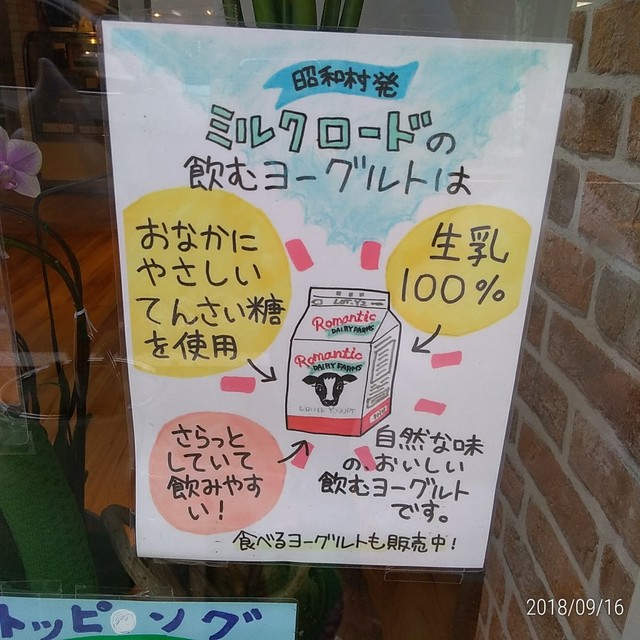 昭和村発
ミルクロードの
飲むヨーグルトは
おなかに
やさしい
てんさい糖
を使用
生乳
100%
Romantic
DAIRY FARMS
Romantic
DAIRY FARMS
さらっと
していて
飲みやす
い!
自然な味
の、おいしい
飲むヨーグルト
です。
食べるヨーグルトも販売中!
トッピング
2018/09/16